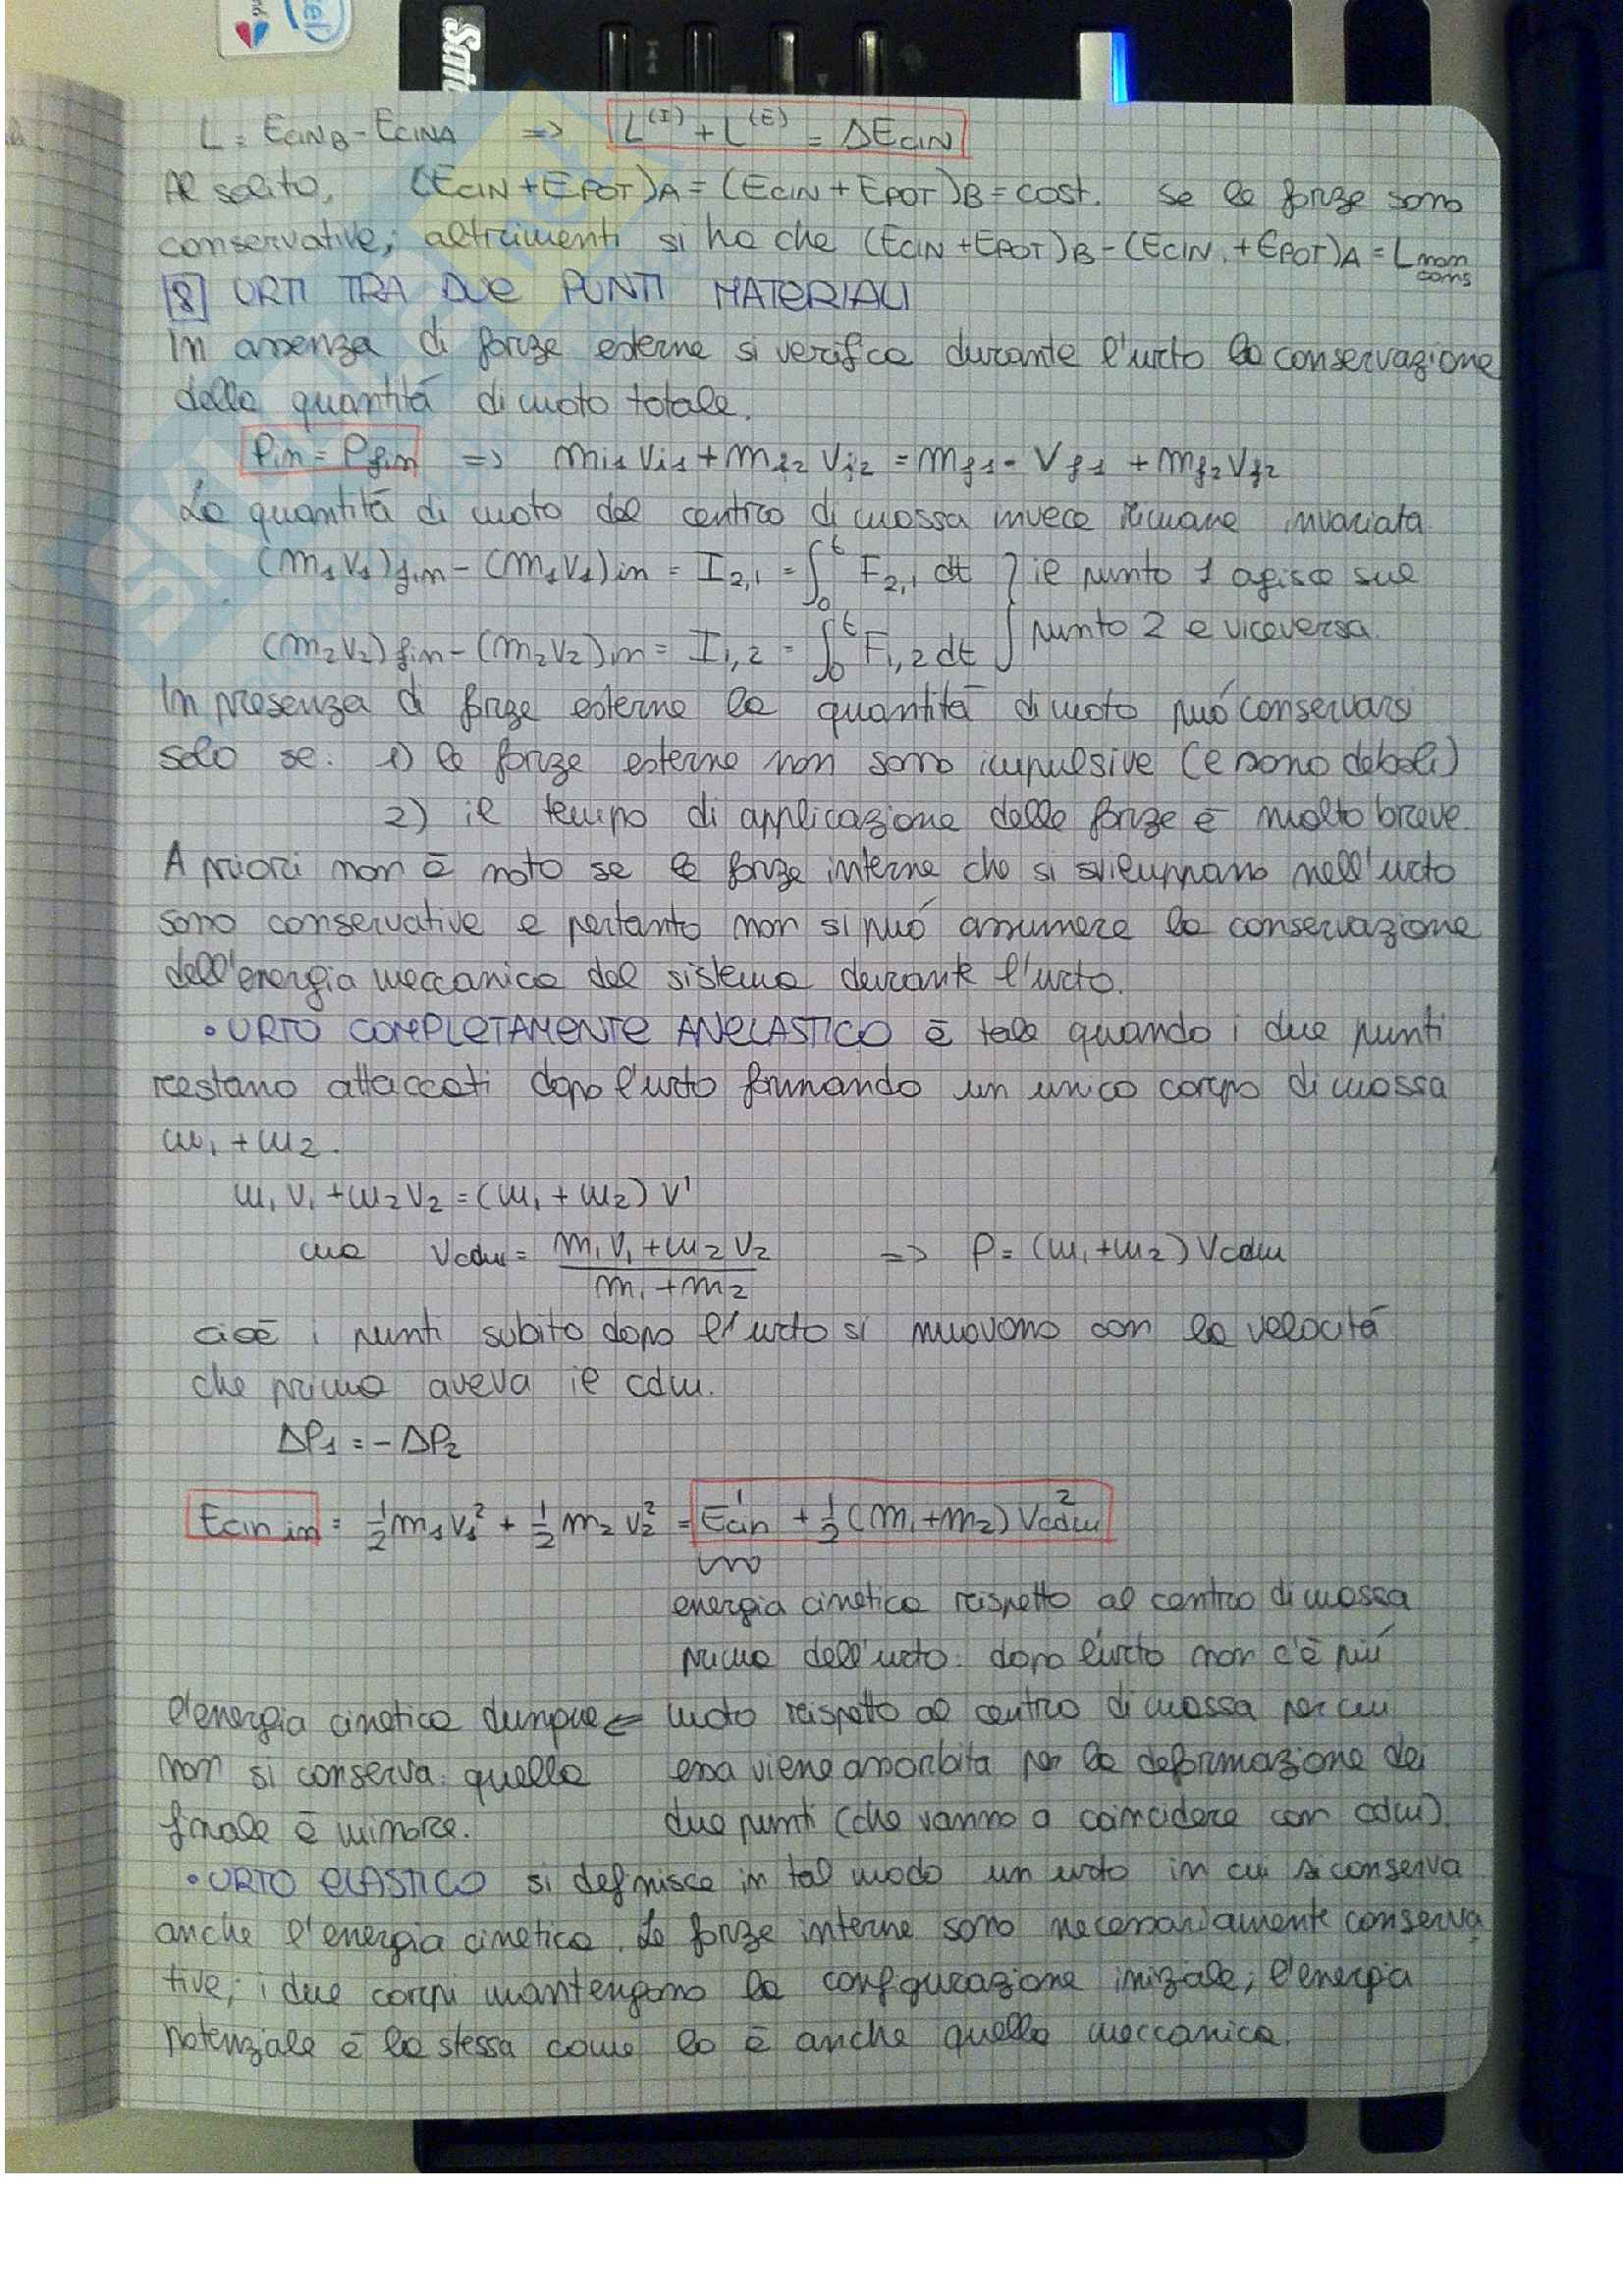 L = ECINB - ECINA => L^(I) + L^(E) = ΔECIN
Al solito, (ECIN + EPOT)A = (ECIN + EPOT)B = cost. se le forze sono
conservative; altrimenti si ha che (ECIN + EPOT)B - (ECIN + EPOT)A = L non cons
8 URTI TRA DUE PUNTI MATERIALI
In assenza di forze esterne si verifica durante l'urto la conservazione
della quantità di moto totale.
Pin = Pfin => mi1 vi1 + mi2 vi2 = mf1 · vf1 + mf2 vf2
La quantità di moto del centro di massa invece rimane invariata
(m1 v1)fin - (m1 v1)in = I2,1 = ∫0^t F2,1 dt } il punto 1 agisce sul
(m2 v2)fin - (m2 v2)in = I1,2 = ∫0^t F1,2 dt } punto 2 e viceversa.
In presenza di forze esterne la quantità di moto può conservarsi
solo se: 1) le forze esterne non sono impulsive (e sono deboli)
2) il tempo di applicazione delle forze è molto breve.
A priori non è noto se le forze interne che si sviluppano nell'urto
sono conservative e pertanto non si può assumere la conservazione
dell'energia meccanica del sistema durante l'urto.
• URTO COMPLETAMENTE ANELASTICO è tale quando i due punti
restano attaccati dopo l'urto formando un unico corpo di massa
m1 + m2.
m1 v1 + m2 v2 = (m1 + m2) v'
ma vcdm = (m1 v1 + m2 v2) / (m1 + m2) => P = (m1 + m2) vcdm
cioè i punti subito dopo l'urto si muovono con la velocità
che prima aveva il cdm.
ΔP1 = - ΔP2
Ecin in = 1/2 m1 v1² + 1/2 m2 v2² = E'cin + 1/2 (m1 + m2) vcdm²
energia cinetica rispetto al centro di massa
prima dell'urto: dopo l'urto non c'è più
l'energia cinetica dunque <= moto rispetto al centro di massa per cui
non si conserva: quella essa viene assorbita per la deformazione dei
finale è minore. due punti (che vanno a coincidere con cdm).
• URTO ELASTICO si definisce in tal modo un urto in cui si conserva
anche l'energia cinetica. Le forze interne sono necessariamente conserva
tive; i due corpi mantengono la configurazione iniziale; l'energia
potenziale è la stessa come lo è anche quella meccanica.